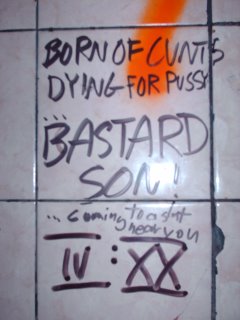 BORN OF CUNTS
DYING FOR PUSSY
...BASTARD
SON!
...coming to a slut
near you
IV : XX